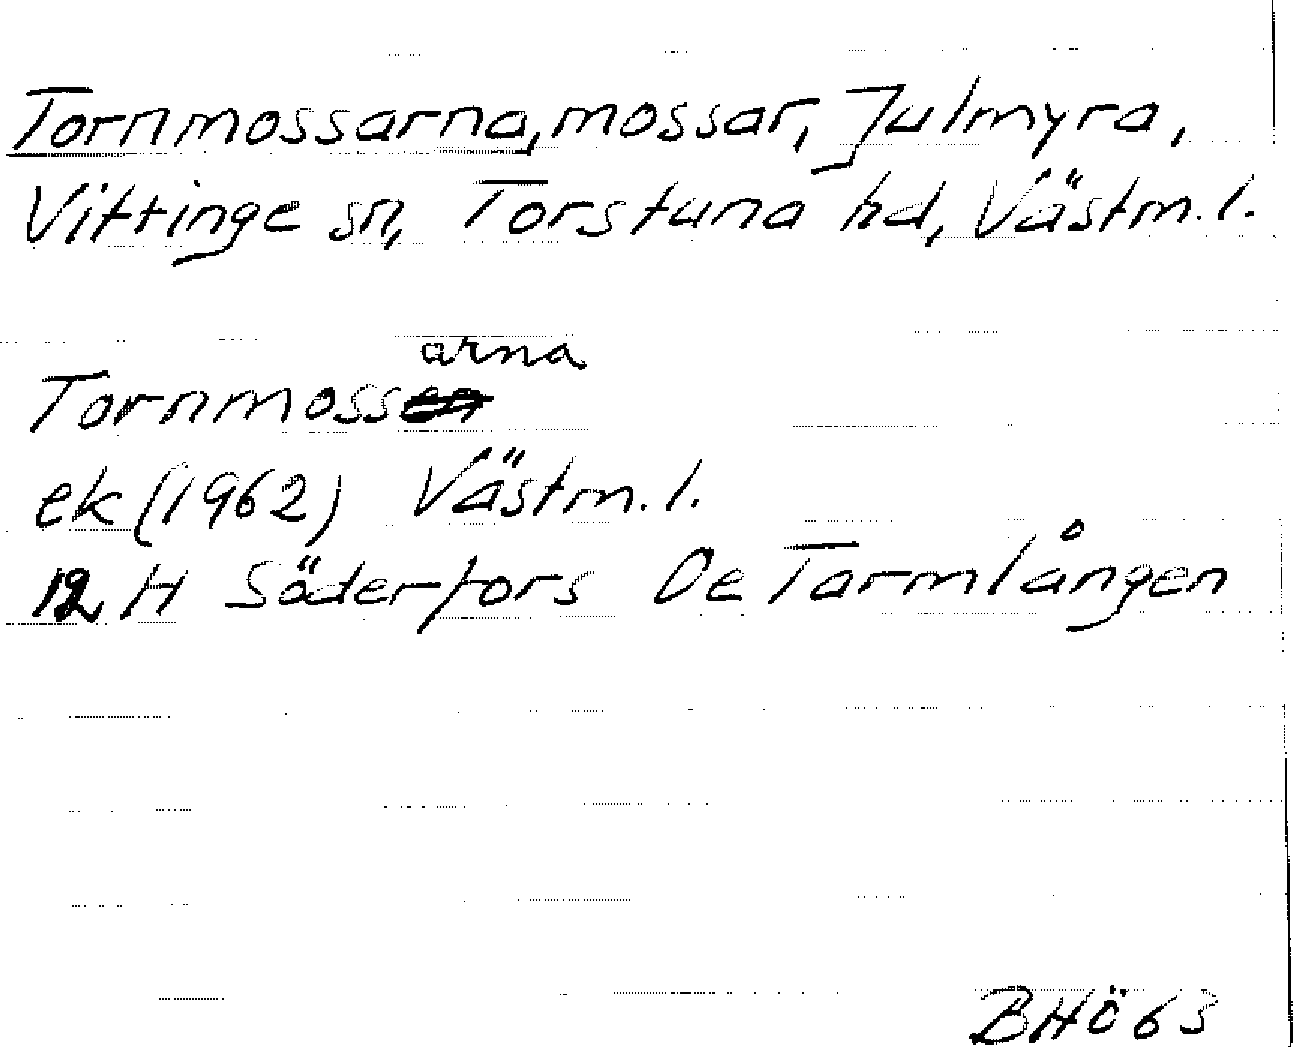 Tornmossarna, mossar, Julmyra,
Vittinge sn, Torstuna hd, Västm.l.
arna
Tornmossen
ek (1962) Västm.l.
12 H Söderfors De Tarmlången
BHÖ 63